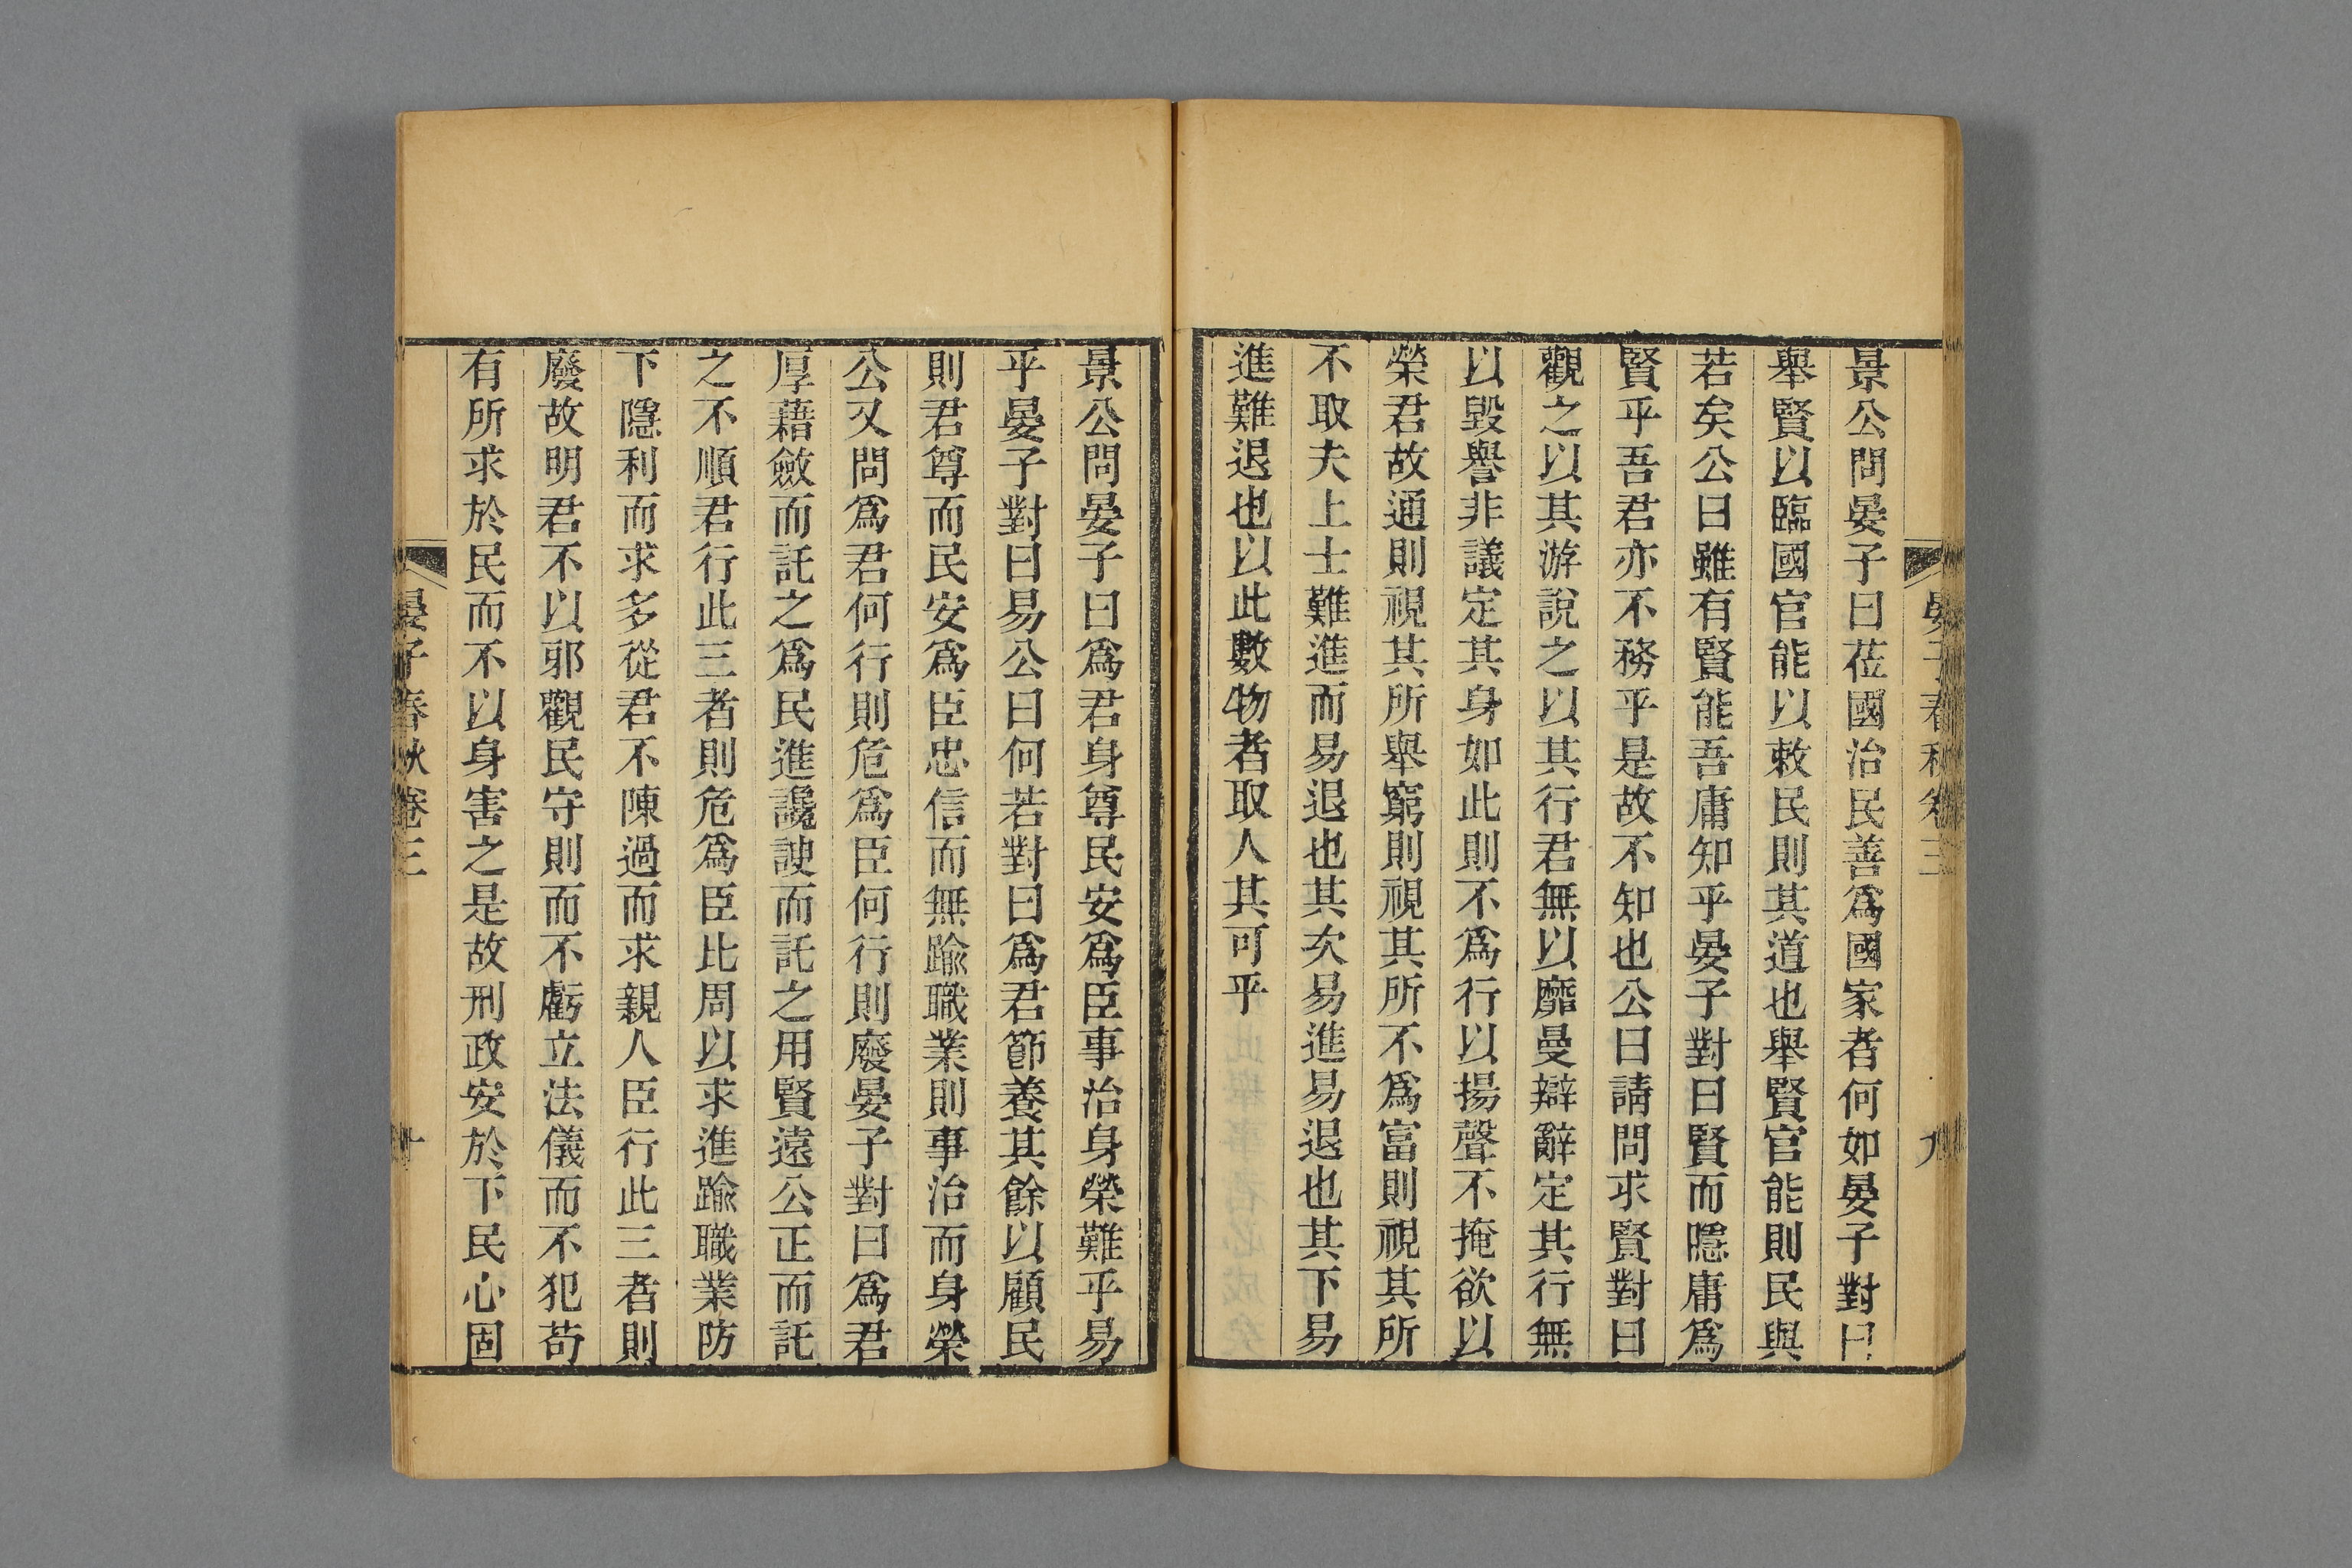 晏子春秋卷三
九
景公問晏子曰莅國治民善爲國家者何如晏子對曰
舉賢以臨國官能以敕民則其道也舉賢官能則民與
若矣公曰雖有賢能吾庸知乎晏子對曰賢而隱庸爲
賢乎吾君亦不務乎是故不知也公曰請問求賢對曰
觀之以其游說之以其行君無以靡曼辯辭定其行無
以毀譽非議定其身如此則不爲行以揚聲不掩欲以
榮君故通則視其所舉窮則視其所不爲富則視其所
不取夫上士難進而易退也其次易進易退也其下易
進難退也以此數物者取人其可乎
景公問晏子曰爲君身尊民安爲臣事治身榮難乎易
乎晏子對曰易公曰何若對曰爲君節養其餘以顧民
則君尊而民安爲臣忠信而無踰職業則事治而身榮
公又問爲君何行則危爲臣何行則廢晏子對曰爲君
厚藉斂而託之爲民進讒諛而託之用賢遠公正而託
之不順君行此三者則危爲臣比周以求進踰職業防
下隱利而求多從君不陳過而求親人臣行此三者則
廢故明君不以邪觀民守則而不虧立法儀而不犯苟
有所求於民而不以身害之是故刑政安於下民心固
晏子春秋卷三
十